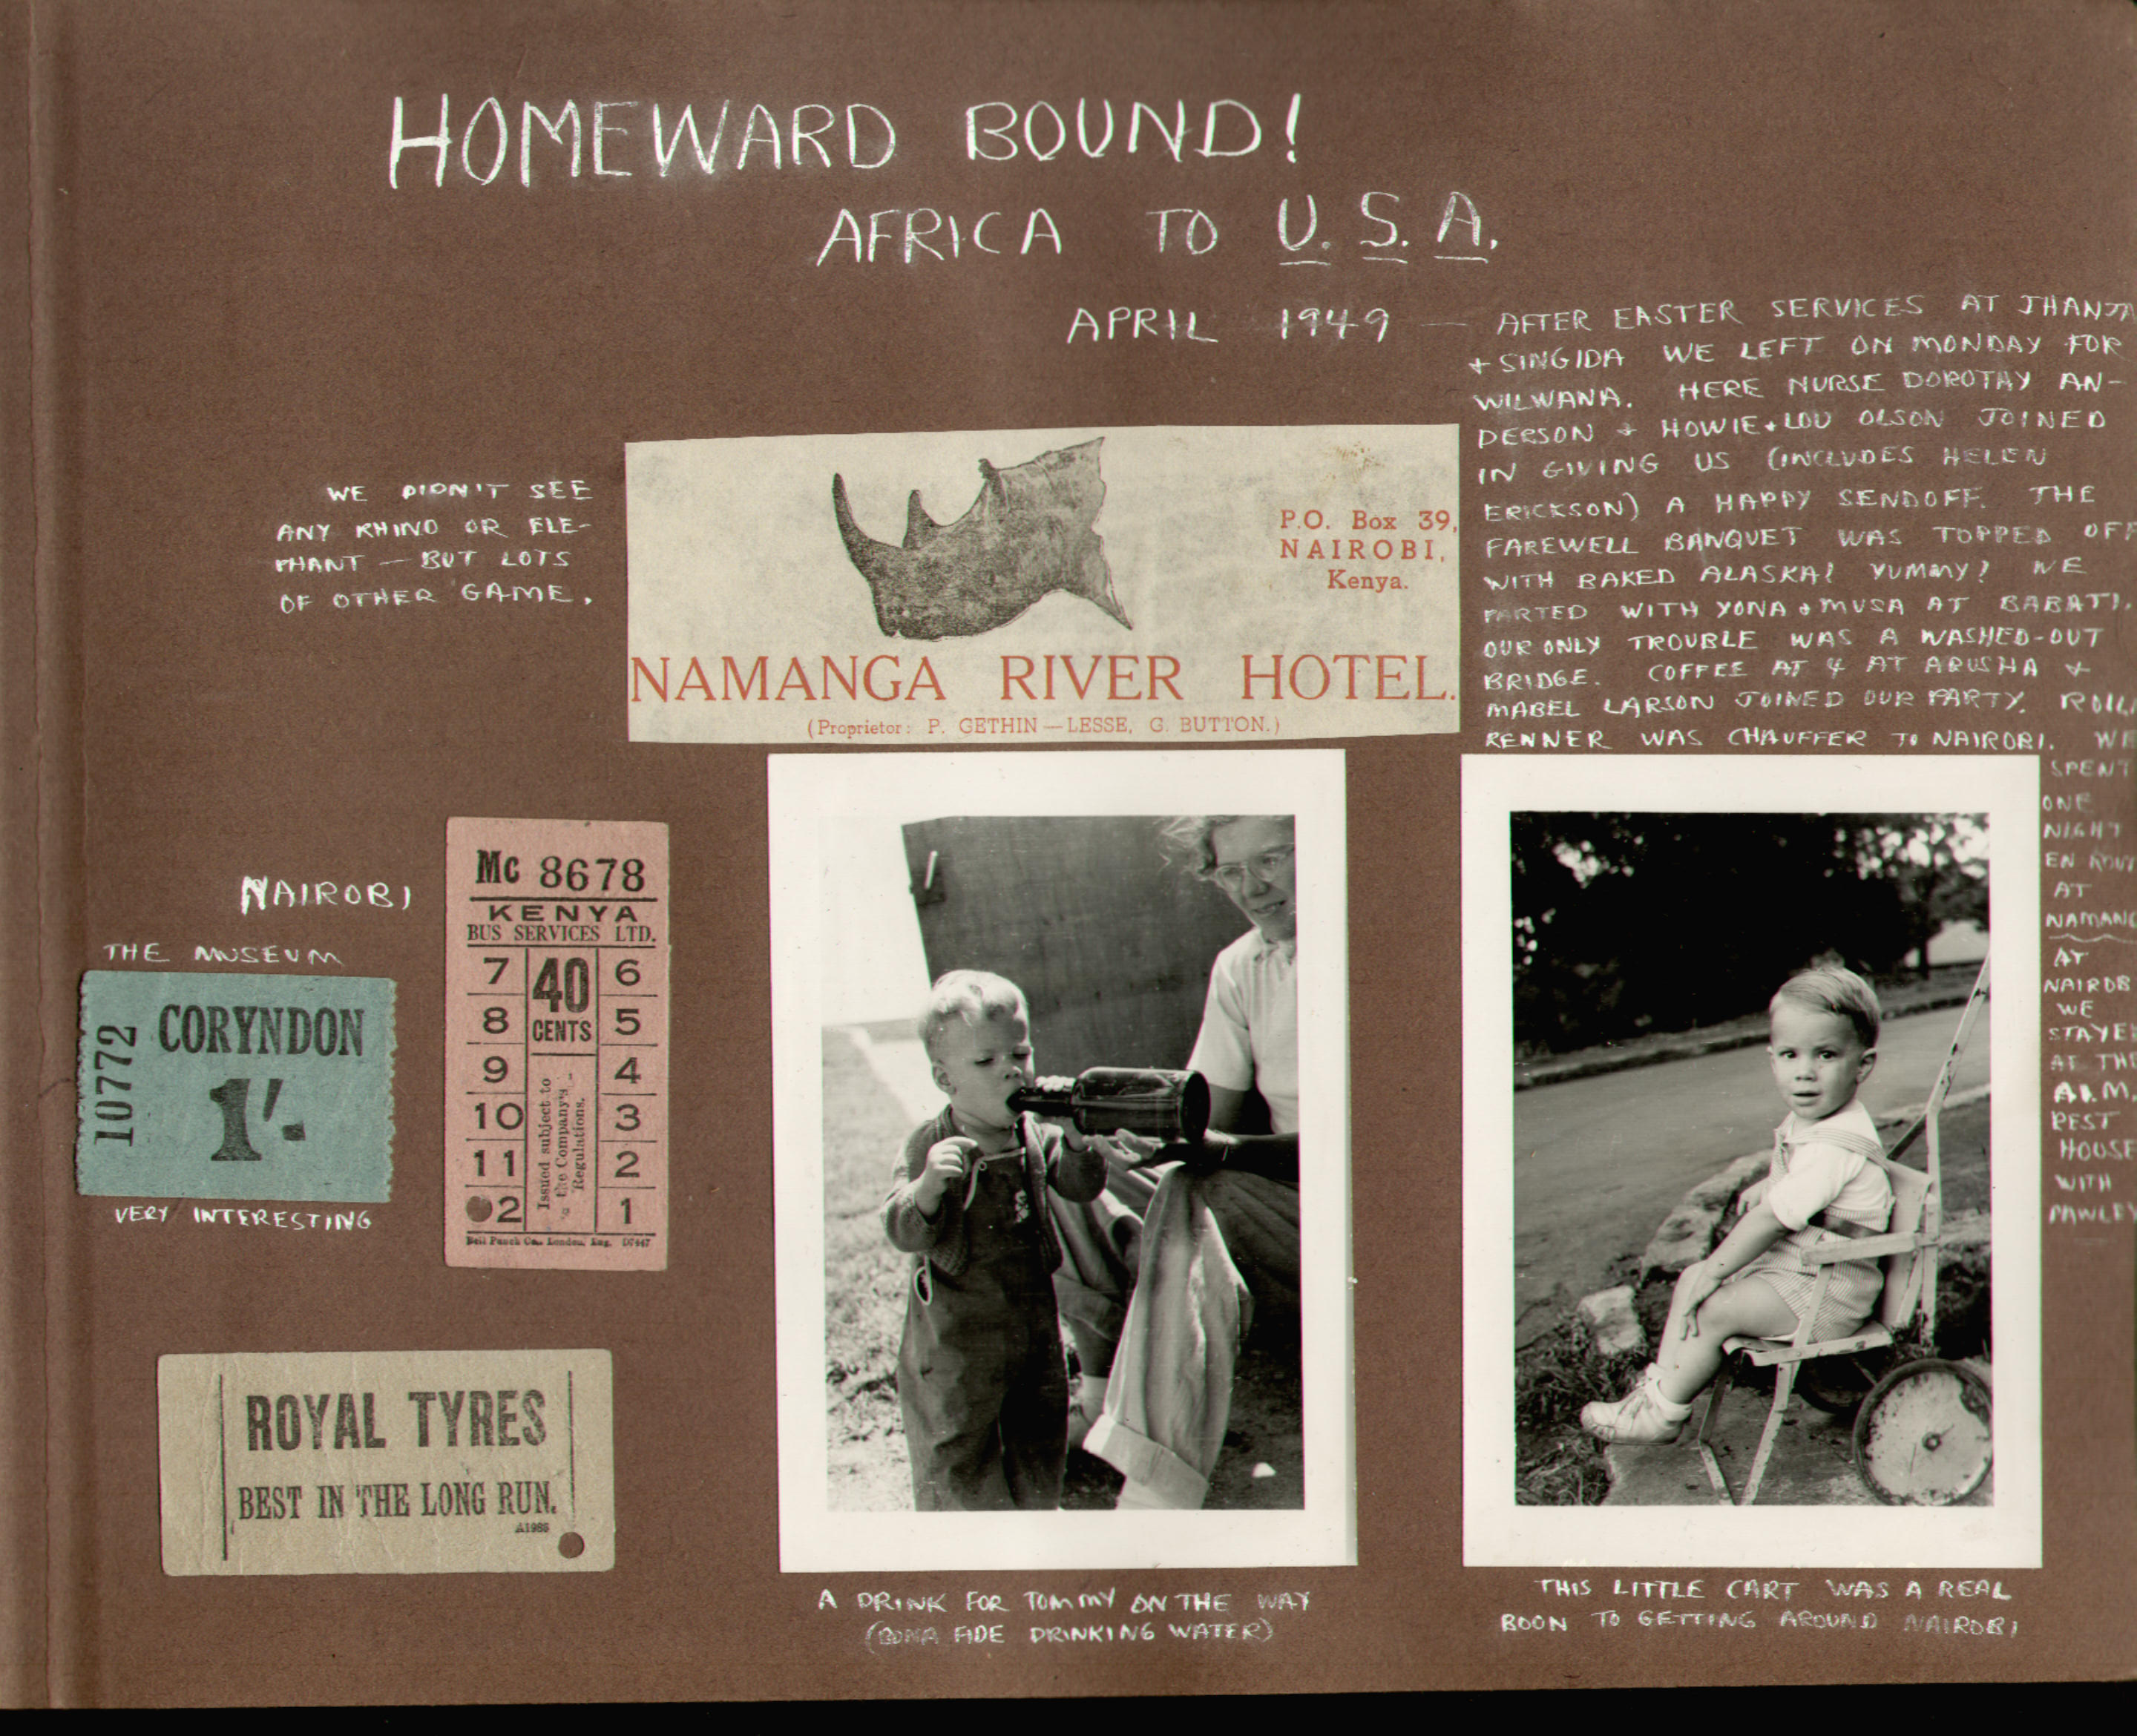 HOMEWARD BOUND!
AFRICA TO U.S.A.
APRIL 1949 — AFTER EASTER SERVICES AT
+ SINGIDA WE LEFT ON MONDAY FOR
WILWANA. HERE NURSE DOROTHY AN-
DERSON + HOWIE + LOU OLSON JOINED
IN GIVING US (INCLUDES HELEN
ERICKSON) A HAPPY SENDOFF. THE
FAREWELL BANQUET WAS TOPPED OFF
WITH BAKED ALASKA! YUMMY! WE
PARTED WITH YONA + MUSA AT BABATI.
OUR ONLY TROUBLE WAS A WASHED-OUT
BRIDGE. COFFEE AT 4 AT ARUSHA +
MABEL LARSON JOINED OUR PARTY.
RENNER WAS CHAUFFER TO NAIROBI. WE
SPENT
ONE
NIGHT
EN
AT
NAMANG
AT
NAIROB
WE
STAYE
AT THE
A.I.M.
REST
HOUSE
WITH
PAWLEY
WE DIDN'T SEE
ANY RHINO OR ELE-
PHANT — BUT LOTS
OF OTHER GAME.
P.O. Box 39,
NAIROBI,
Kenya.
NAMANGA RIVER HOTEL.
(Proprietor: P. GETHIN—LESSE, G. BUTTON.)
NAIROBI
THE MUSEUM
10772
CORYNDON
1/-
VERY INTERESTING
Mc 8678
KENYA
BUS SERVICES LTD.
7 40 6
8 CENTS 5
9 4
10 3
11 2
2 1
Issued subject to
the Company's
Regulations.
Bell Punch Co., London, Eng.
ROYAL TYRES
BEST IN THE LONG RUN.
A1985
A DRINK FOR TOMMY ON THE WAY
(BONA FIDE DRINKING WATER)
THIS LITTLE CART WAS A REAL
BOON TO GETTING AROUND NAIROBI